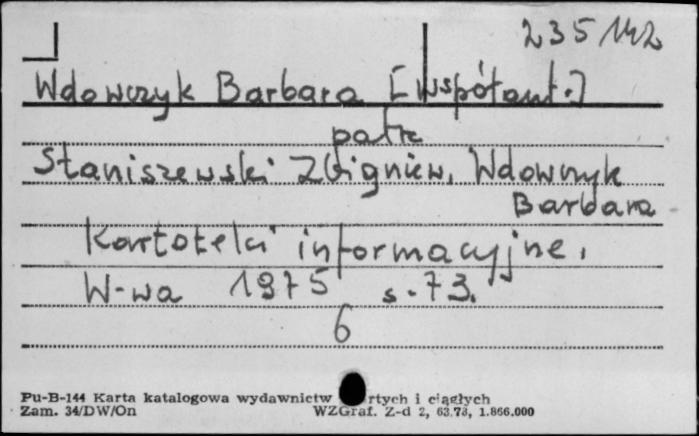 235142
Wdowczyk Barbara [współaut.]
patrz
Staniszewski Zbigniew, Wdowczyk
Barbara
Kartoteki informacyjne.
W-wa 1975 s. 73.
6
Pu-B-144 Karta katalogowa wydawnictw rtych i ciągłych
Zam. 34/DW/On WZGraf. Z-d 2, 63.73, 1.866.000